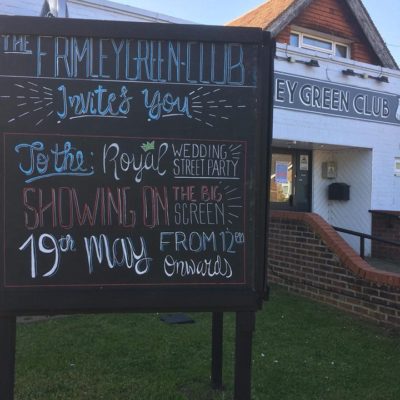 THE FRIMLEY GREEN CLUB
Invites You
To the: Royal WEDDING STREET PARTY
SHOWING ON THE BIG SCREEN
19th May FROM 12pm
Onwards
EY GREEN CLUB